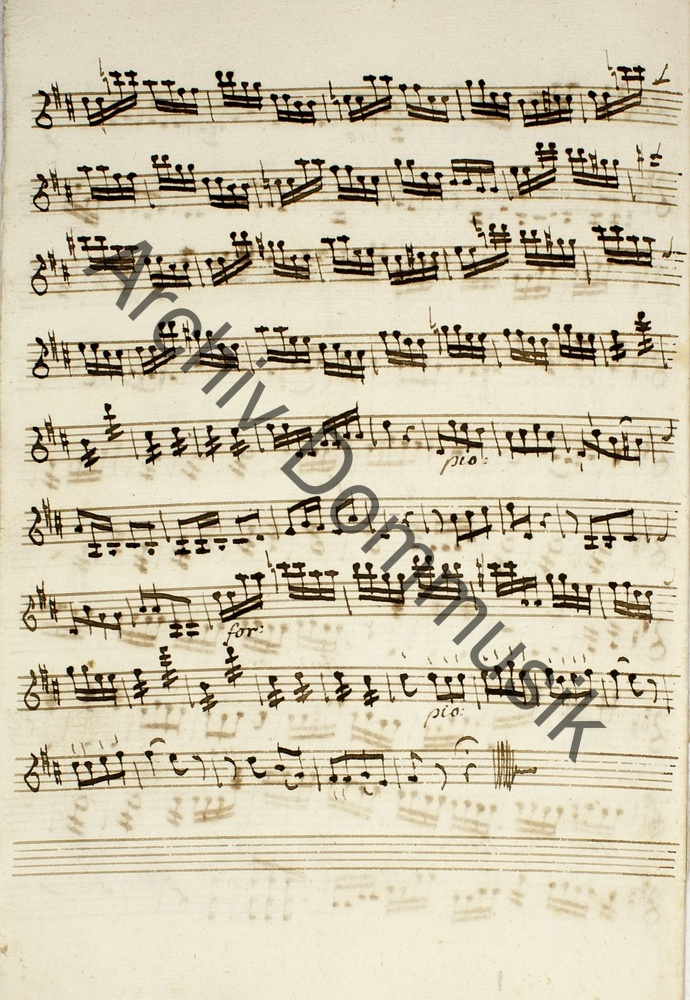 pio:
for:
pio:
Archiv Dommusik